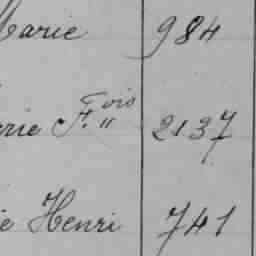 Marie 984
rie F.ois 2137
e Henri 741